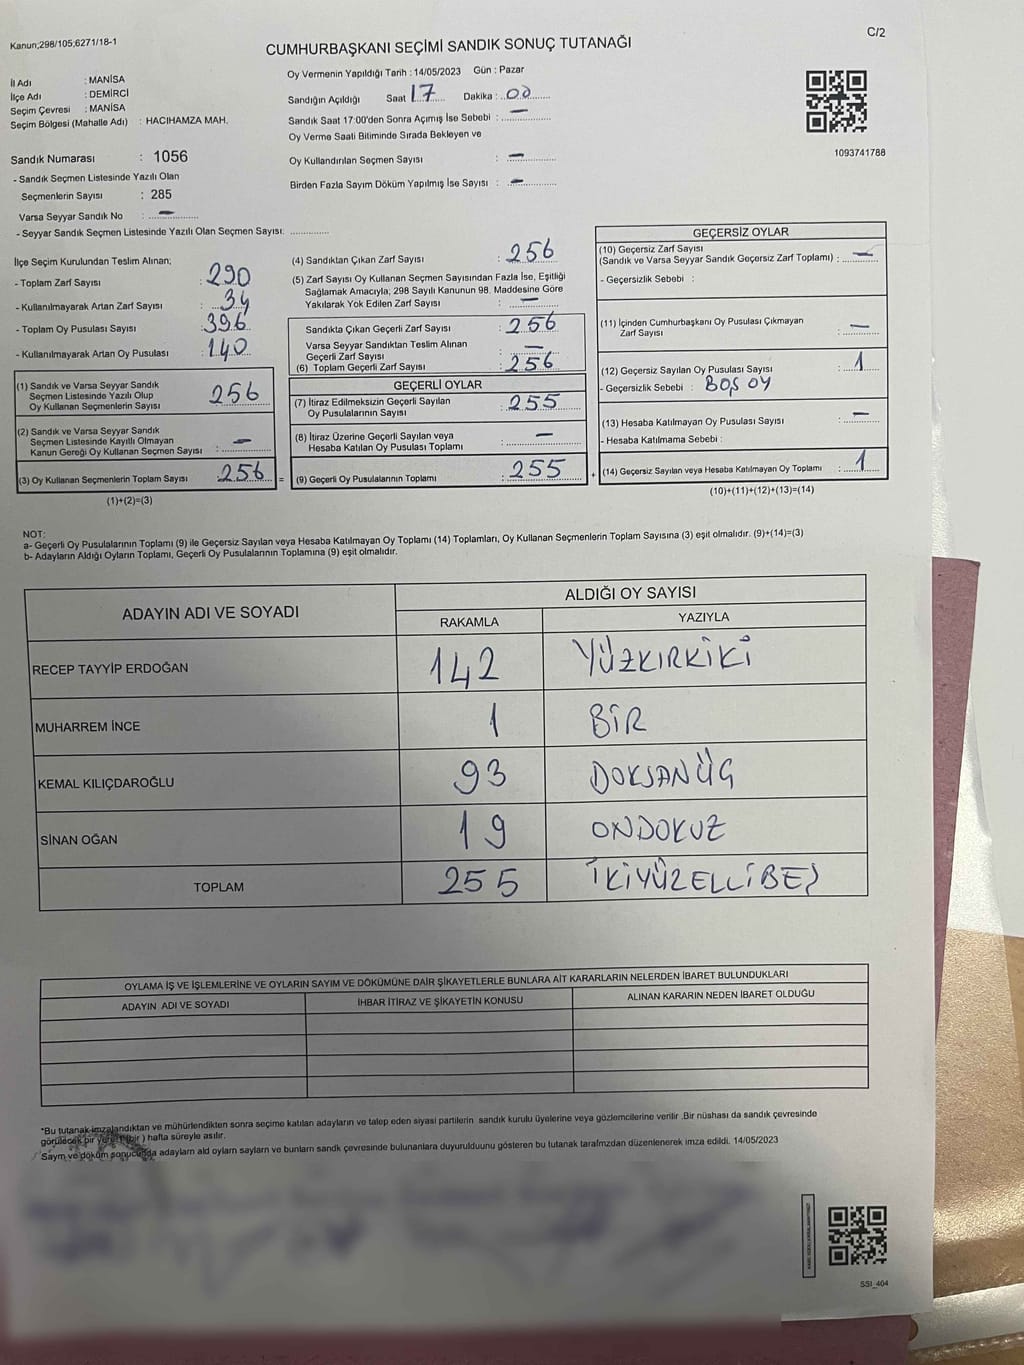 Kanun;298/105;6271/18-1
C/2
CUMHURBAŞKANI SEÇİMİ SANDIK SONUÇ TUTANAĞI
İl Adı : MANİSA
İlçe Adı : DEMİRCİ
Seçim Çevresi : MANİSA
Seçim Bölgesi (Mahalle Adı) : HACIHAMZA MAH.
Sandık Numarası : 1056
- Sandık Seçmen Listesinde Yazılı Olan
Seçmenlerin Sayısı : 285
Varsa Seyyar Sandık No : –
- Seyyar Sandık Seçmen Listesinde Yazılı Olan Seçmen Sayısı: ..............
Oy Vermenin Yapıldığı Tarih : 14/05/2023 Gün : Pazar
Sandığın Açıldığı Saat 17 Dakika : 00
Sandık Saat 17:00'den Sonra Açımış İse Sebebi : –
Oy Verme Saati Bitiminde Sırada Bekleyen ve
Oy Kullandırılan Seçmen Sayısı : –
Birden Fazla Sayım Döküm Yapılmış İse Sayısı : –
1093741788
İlçe Seçim Kurulundan Teslim Alınan;
- Toplam Zarf Sayısı : 290
- Kullanılmayarak Artan Zarf Sayısı : 34
- Toplam Oy Pusulası Sayısı : 396
- Kullanılmayarak Artan Oy Pusulası : 140
(1) Sandık ve Varsa Seyyar Sandık
Seçmen Listesinde Yazılı Olup
Oy Kullanan Seçmenlerin Sayısı 256
(2) Sandık ve Varsa Seyyar Sandık
Seçmen Listesinde Kayıllı Olmayan
Kanun Gereği Oy Kullanan Seçmen Sayısı : –
(3) Oy Kullanan Seçmenlerin Toplam Sayısı : 256
(1)+(2)=(3)
=
(4) Sandıktan Çıkan Zarf Sayısı : 256
(5) Zarf Sayısı Oy Kullanan Seçmen Sayısından Fazla İse, Eşitliği
Sağlamak Amacıyla; 298 Sayılı Kanunun 98. Maddesine Göre
Yakılarak Yok Edilen Zarf Sayısı : –
Sandıkta Çıkan Geçerli Zarf Sayısı : 256
Varsa Seyyar Sandıktan Teslim Alınan
Geçerli Zarf Sayısı : –
(6) Toplam Geçerli Zarf Sayısı : 256
GEÇERLİ OYLAR
(7) İtiraz Edilmeksizin Geçerli Sayılan
Oy Pusulalarının Sayısı : 255
(8) İtiraz Üzerine Geçerli Sayılan veya
Hesaba Katılan Oy Pusulası Toplamı : –
(9) Geçerli Oy Pusulalarının Toplamı : 255
+
GEÇERSİZ OYLAR
(10) Geçersiz Zarf Sayısı
(Sandık ve Varsa Seyyar Sandık Geçersiz Zarf Toplamı) : –
- Geçersizlik Sebebi :
(11) İçinden Cumhurbaşkanı Oy Pusulası Çıkmayan
Zarf Sayısı : –
(12) Geçersiz Sayılan Oy Pusulası Sayısı : 1
- Geçersizlik Sebebi : BOŞ OY
(13) Hesaba Katılmayan Oy Pusulası Sayısı : –
- Hesaba Katılmama Sebebi :
(14) Geçersiz Sayılan veya Hesaba Katılmayan Oy Toplamı : 1
(10)+(11)+(12)+(13)=(14)
NOT:
a- Geçerli Oy Pusulalarının Toplamı (9) ile Geçersiz Sayılan veya Hesaba Katılmayan Oy Toplamı (14) Toplamları, Oy Kullanan Seçmenlerin Toplam Sayısına (3) eşit olmalıdır. (9)+(14)=(3)
b- Adayların Aldığı Oyların Toplamı, Geçerli Oy Pusulalarının Toplamına (9) eşit olmalıdır.
ADAYIN ADI VE SOYADI
ALDIĞI OY SAYISI
RAKAMLA YAZIYLA
RECEP TAYYİP ERDOĞAN 142 YÜZKIRKİKİ
MUHARREM İNCE 1 BİR
KEMAL KILIÇDAROĞLU 93 DOKSANÜÇ
SİNAN OĞAN 19 ONDOKUZ
TOPLAM 255 İKİYÜZELLİBEŞ
OYLAMA İŞ VE İŞLEMLERİNE VE OYLARIN SAYIM VE DÖKÜMÜNE DAİR ŞİKAYETLERLE BUNLARA AİT KARARLARIN NELERDEN İBARET BULUNDUKLARI
ADAYIN ADI VE SOYADI İHBAR İTİRAZ VE ŞİKAYETİN KONUSU ALINAN KARARIN NEDEN İBARET OLDUĞU
*Bu tutanak imzalandıktan ve mühürlendikten sonra seçime katılan adayların ve talep eden siyasi partilerin sandık kurulu üyelerine veya gözlemcilerine verilir .Bir nüshası da sandık çevresinde
görülecek bir yere 1 (bir ) hafta süreyle asılır.
Saym ve döküm sonucunda adayların ald oylarn saylarn ve bunlarn sandk çevresinde bulunanlara duyurulduunu gösteren bu tutanak tarafmzdan düzenlenerek imza edildi. 14/05/2023
SSI_404